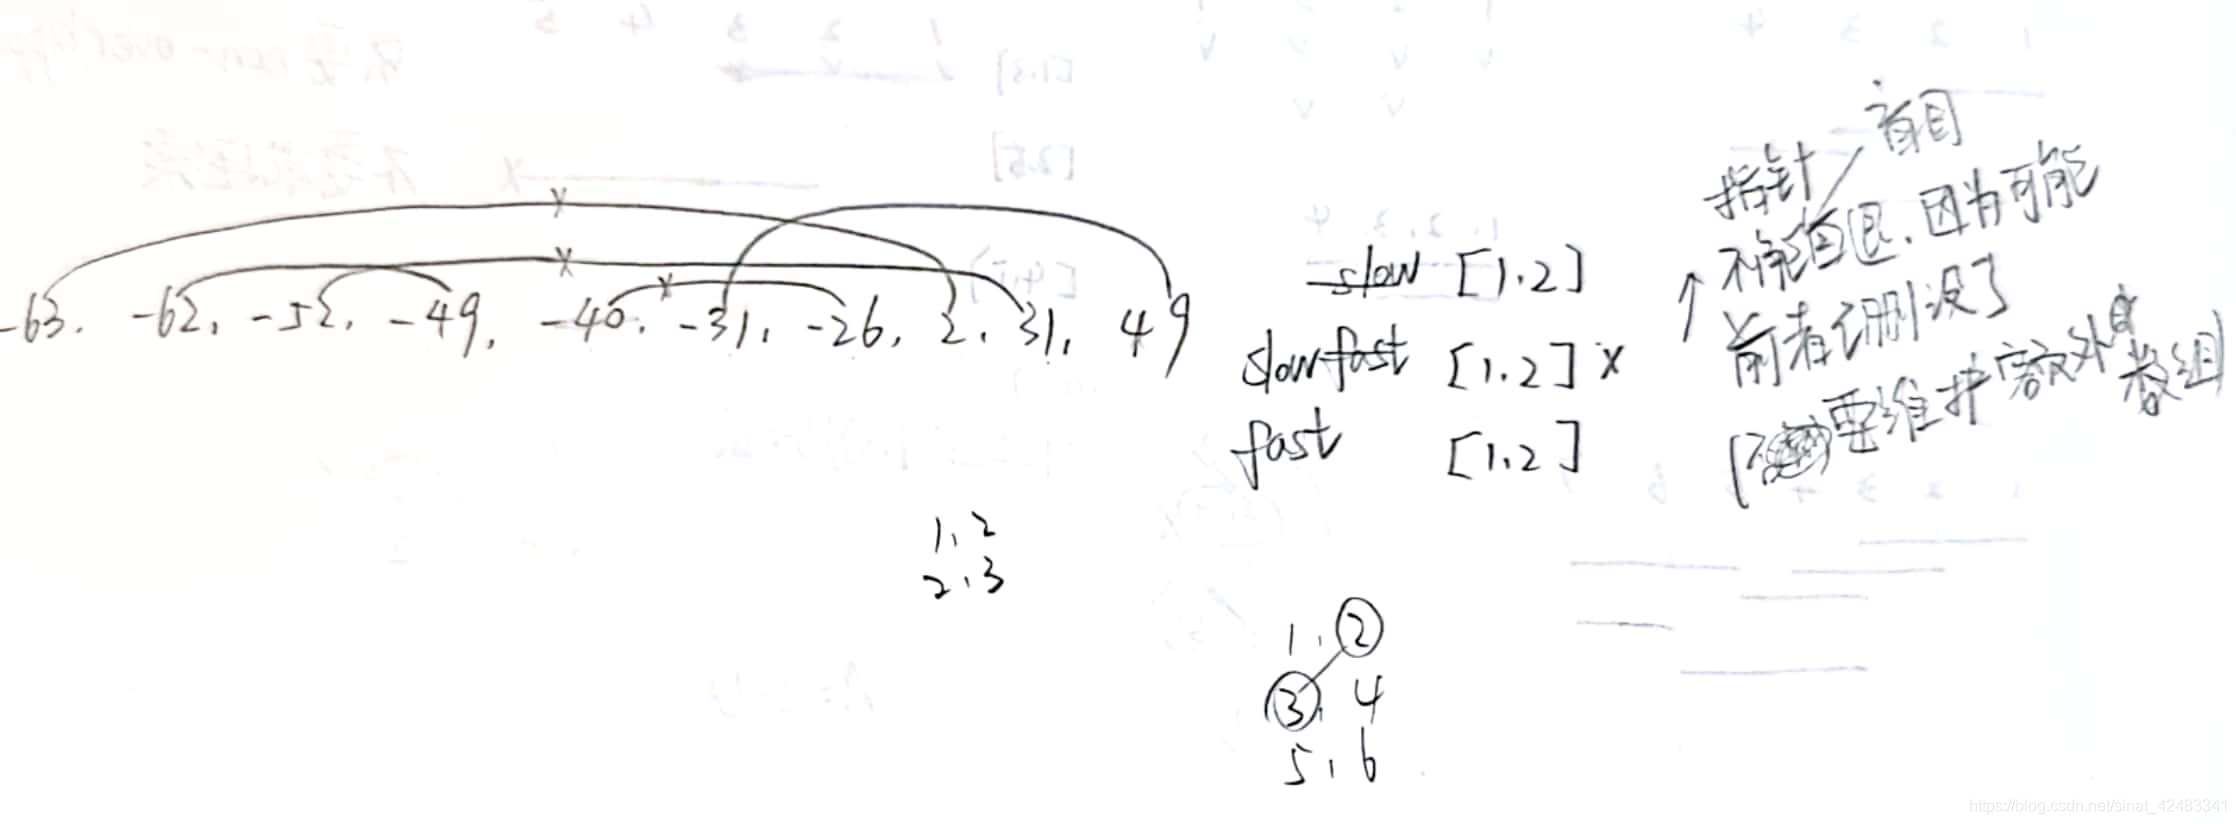 -63, -62, -52, -49, -40, -31, -26, 2, 31, 49
slow [1,2]
slow fast [1,2] x
fast [1,2]
1, 2
2, 3
1, 2
3, 4
5, 6
指针/盲目
不能回退,因为可能
前者已删没了
要维护额外的数组
https://blog.csdn.net/sinat_42483341